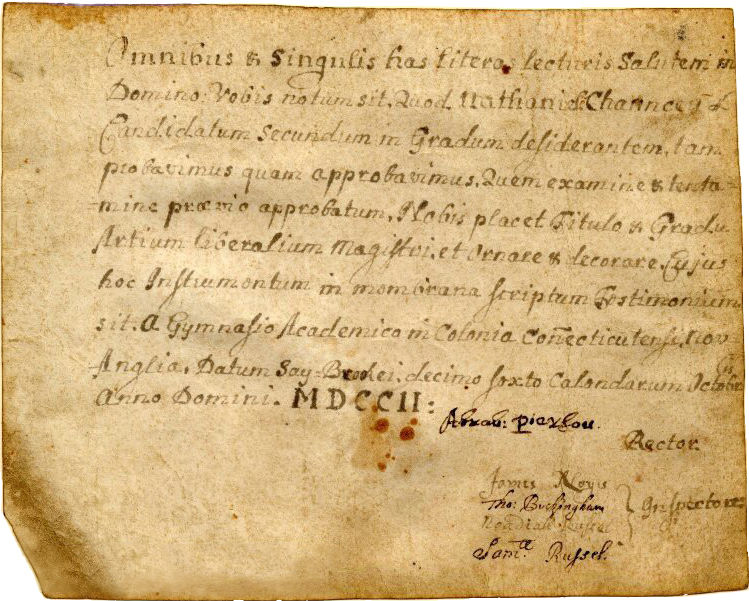 Omnibus & Singulis has literas lecturis Salutem in
Domino. Vobis notum sit, Quod Nathanielē Chaunceyū
Candidatum Secundum in Gradum desiderantem, tam
probavimus quam approbavimus. Quem examine & tenta-
-mine prævio approbatum, Nobis placet Titulo & Gradu
Artium liberalium Magistri, et Ornare & decorare. Cujus
hoc Instrumentum in membrana scriptum Testimonium
sit. A Gymnasio Academico in Colonia Coñecticutensi, Nov-
-Anglia. Datum Say-Brookei, decimo sexto Calendarum Octobris
Anno Domini. MDCCII:
Abrah: Pierson.
Rector.
James Noyis
Tho: Buckingham
Noadiah Russel
Inspectores
Sam.ll Russel.